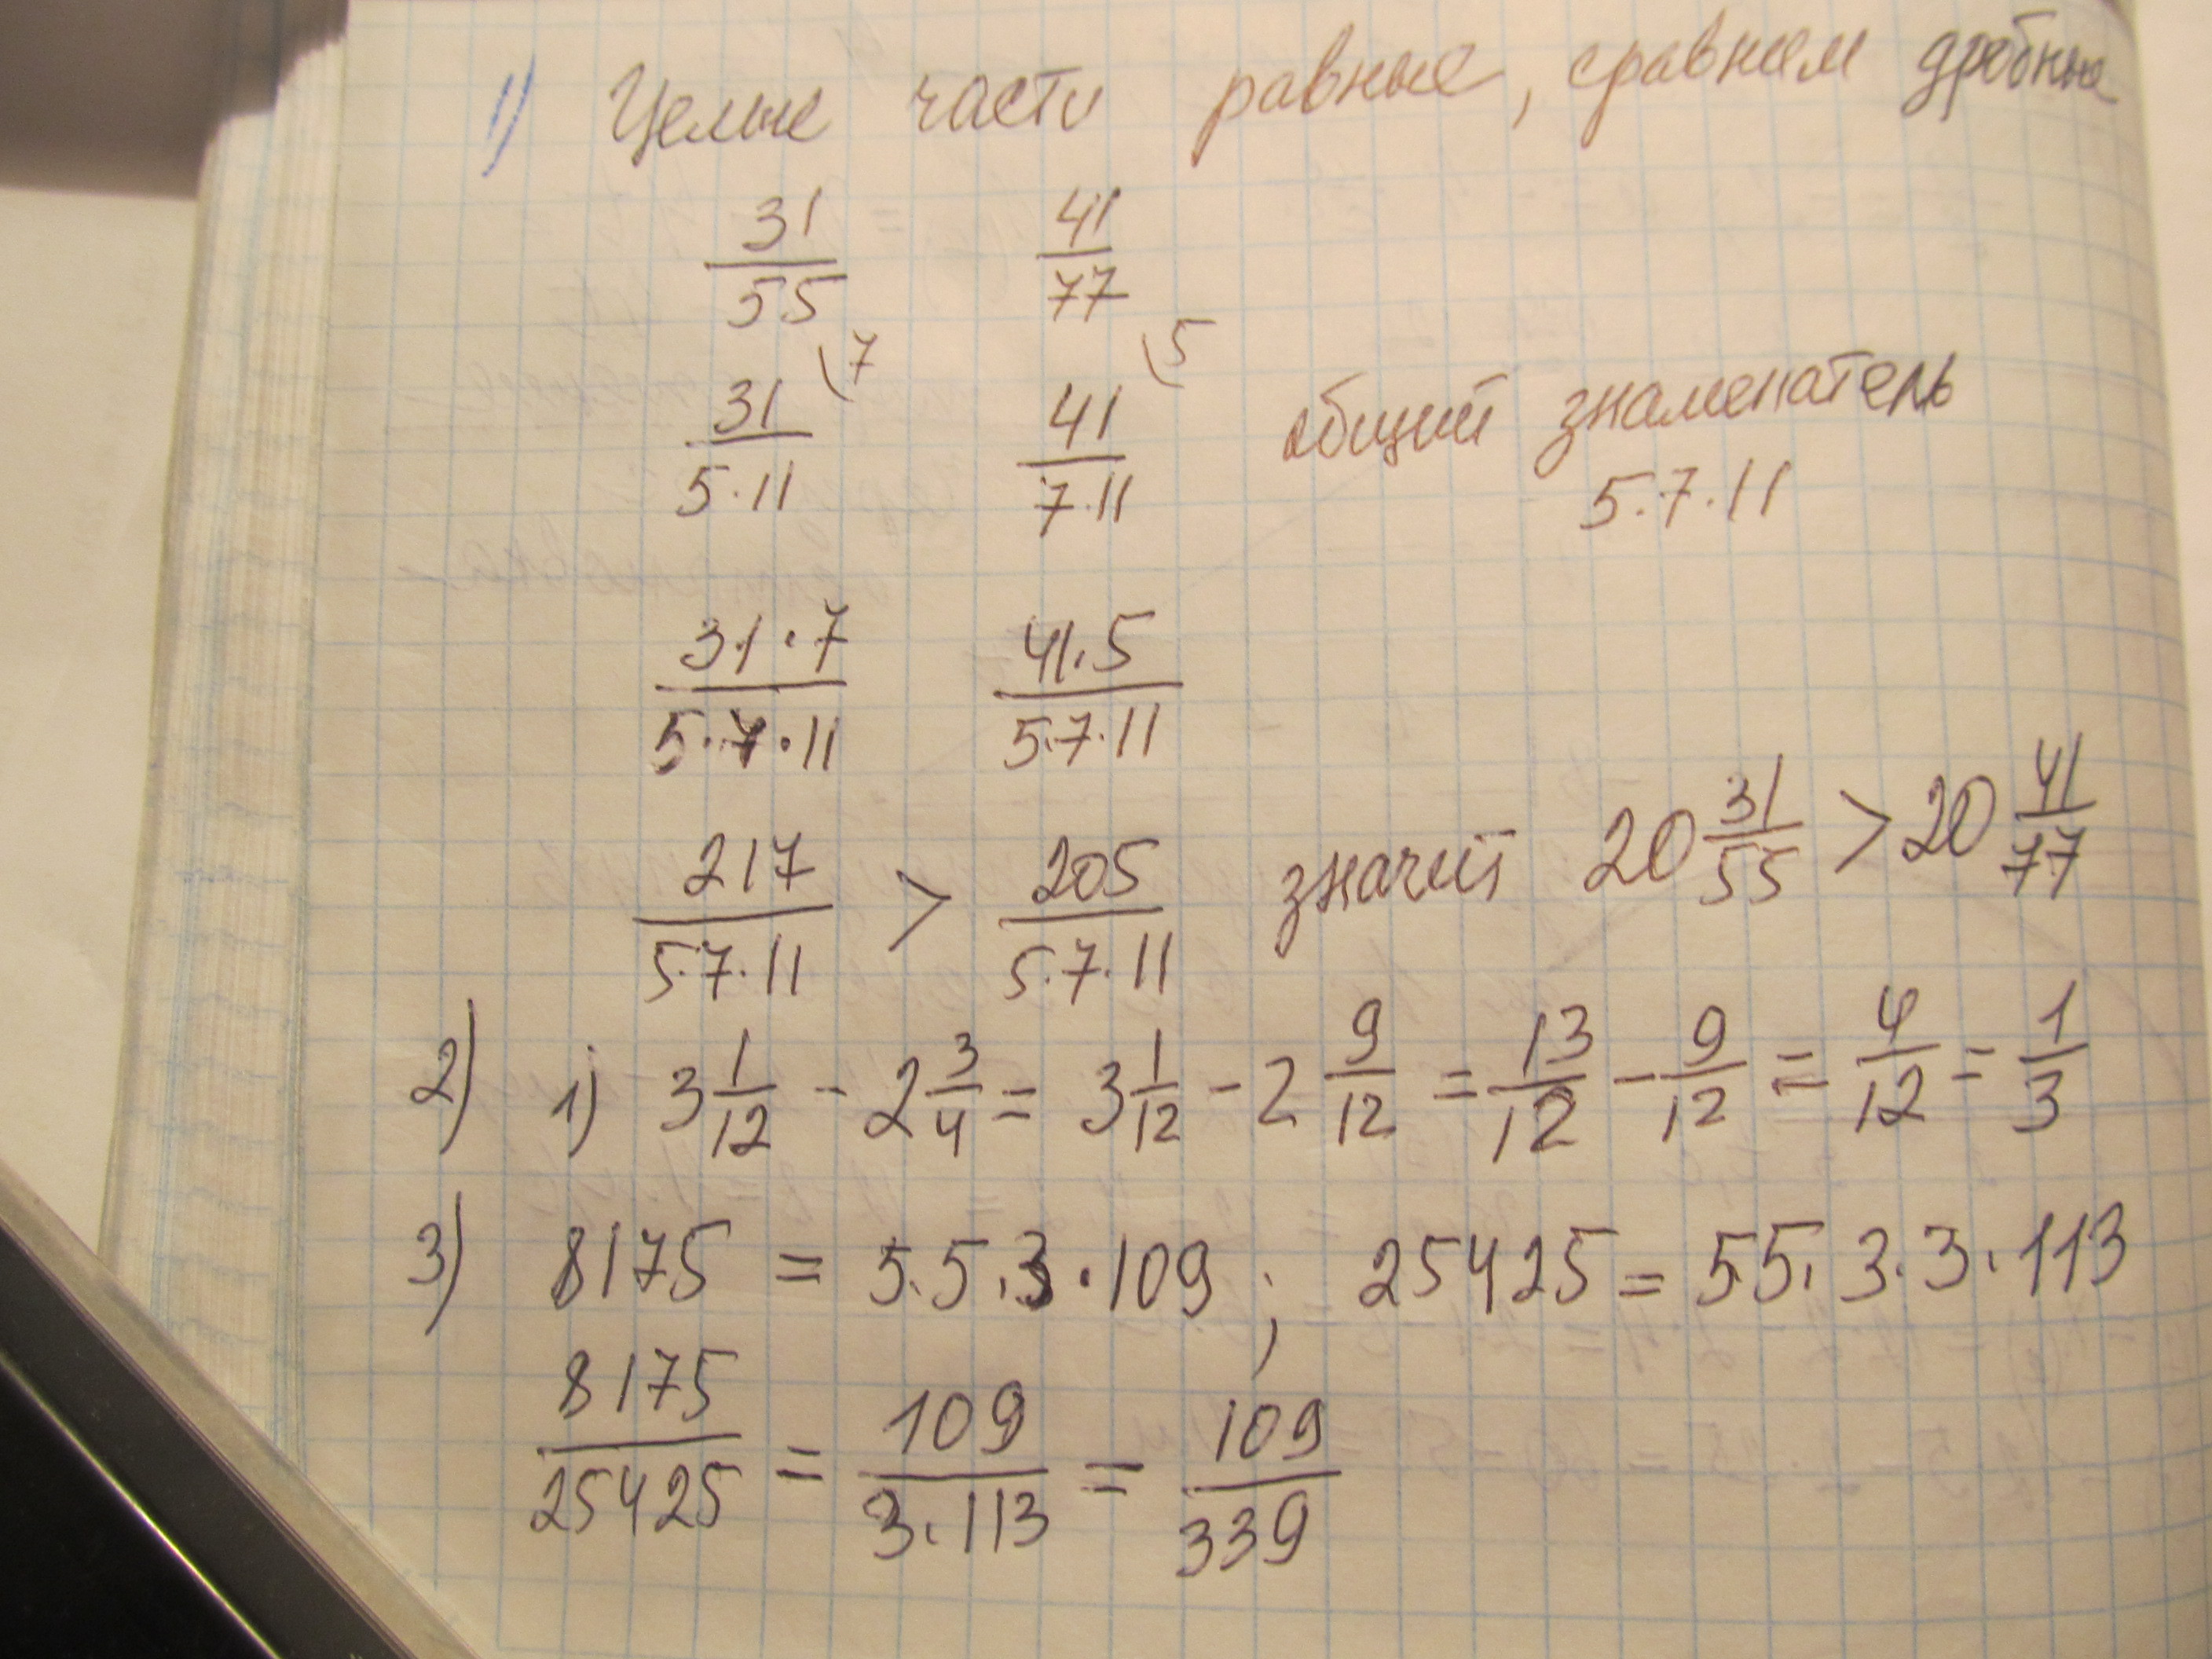 1) Целые части равные, сравнем дробные
31/55 41/77
31/5·11 \7 41/7·11 \5 общий знаменатель
5·7·11
31·7/5·7·11 41·5/5·7·11
217/5·7·11 > 205/5·7·11 значит 20 31/55 > 20 41/77
2) 1) 3 1/12 - 2 3/4 = 3 1/12 - 2 9/12 = 13/12 - 9/12 = 4/12 = 1/3
3) 8175 = 5·5·3·109; 25425 = 5·5·3·3·113
8175/25425 = 109/3·113 = 109/339